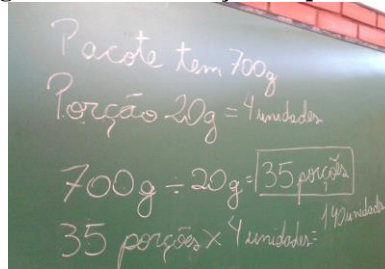 Pacote tem 700g
Porção 20g = 4 unidades
700g ÷ 20g = 35 porções
35 porções × 4 unidades = 140 unidades